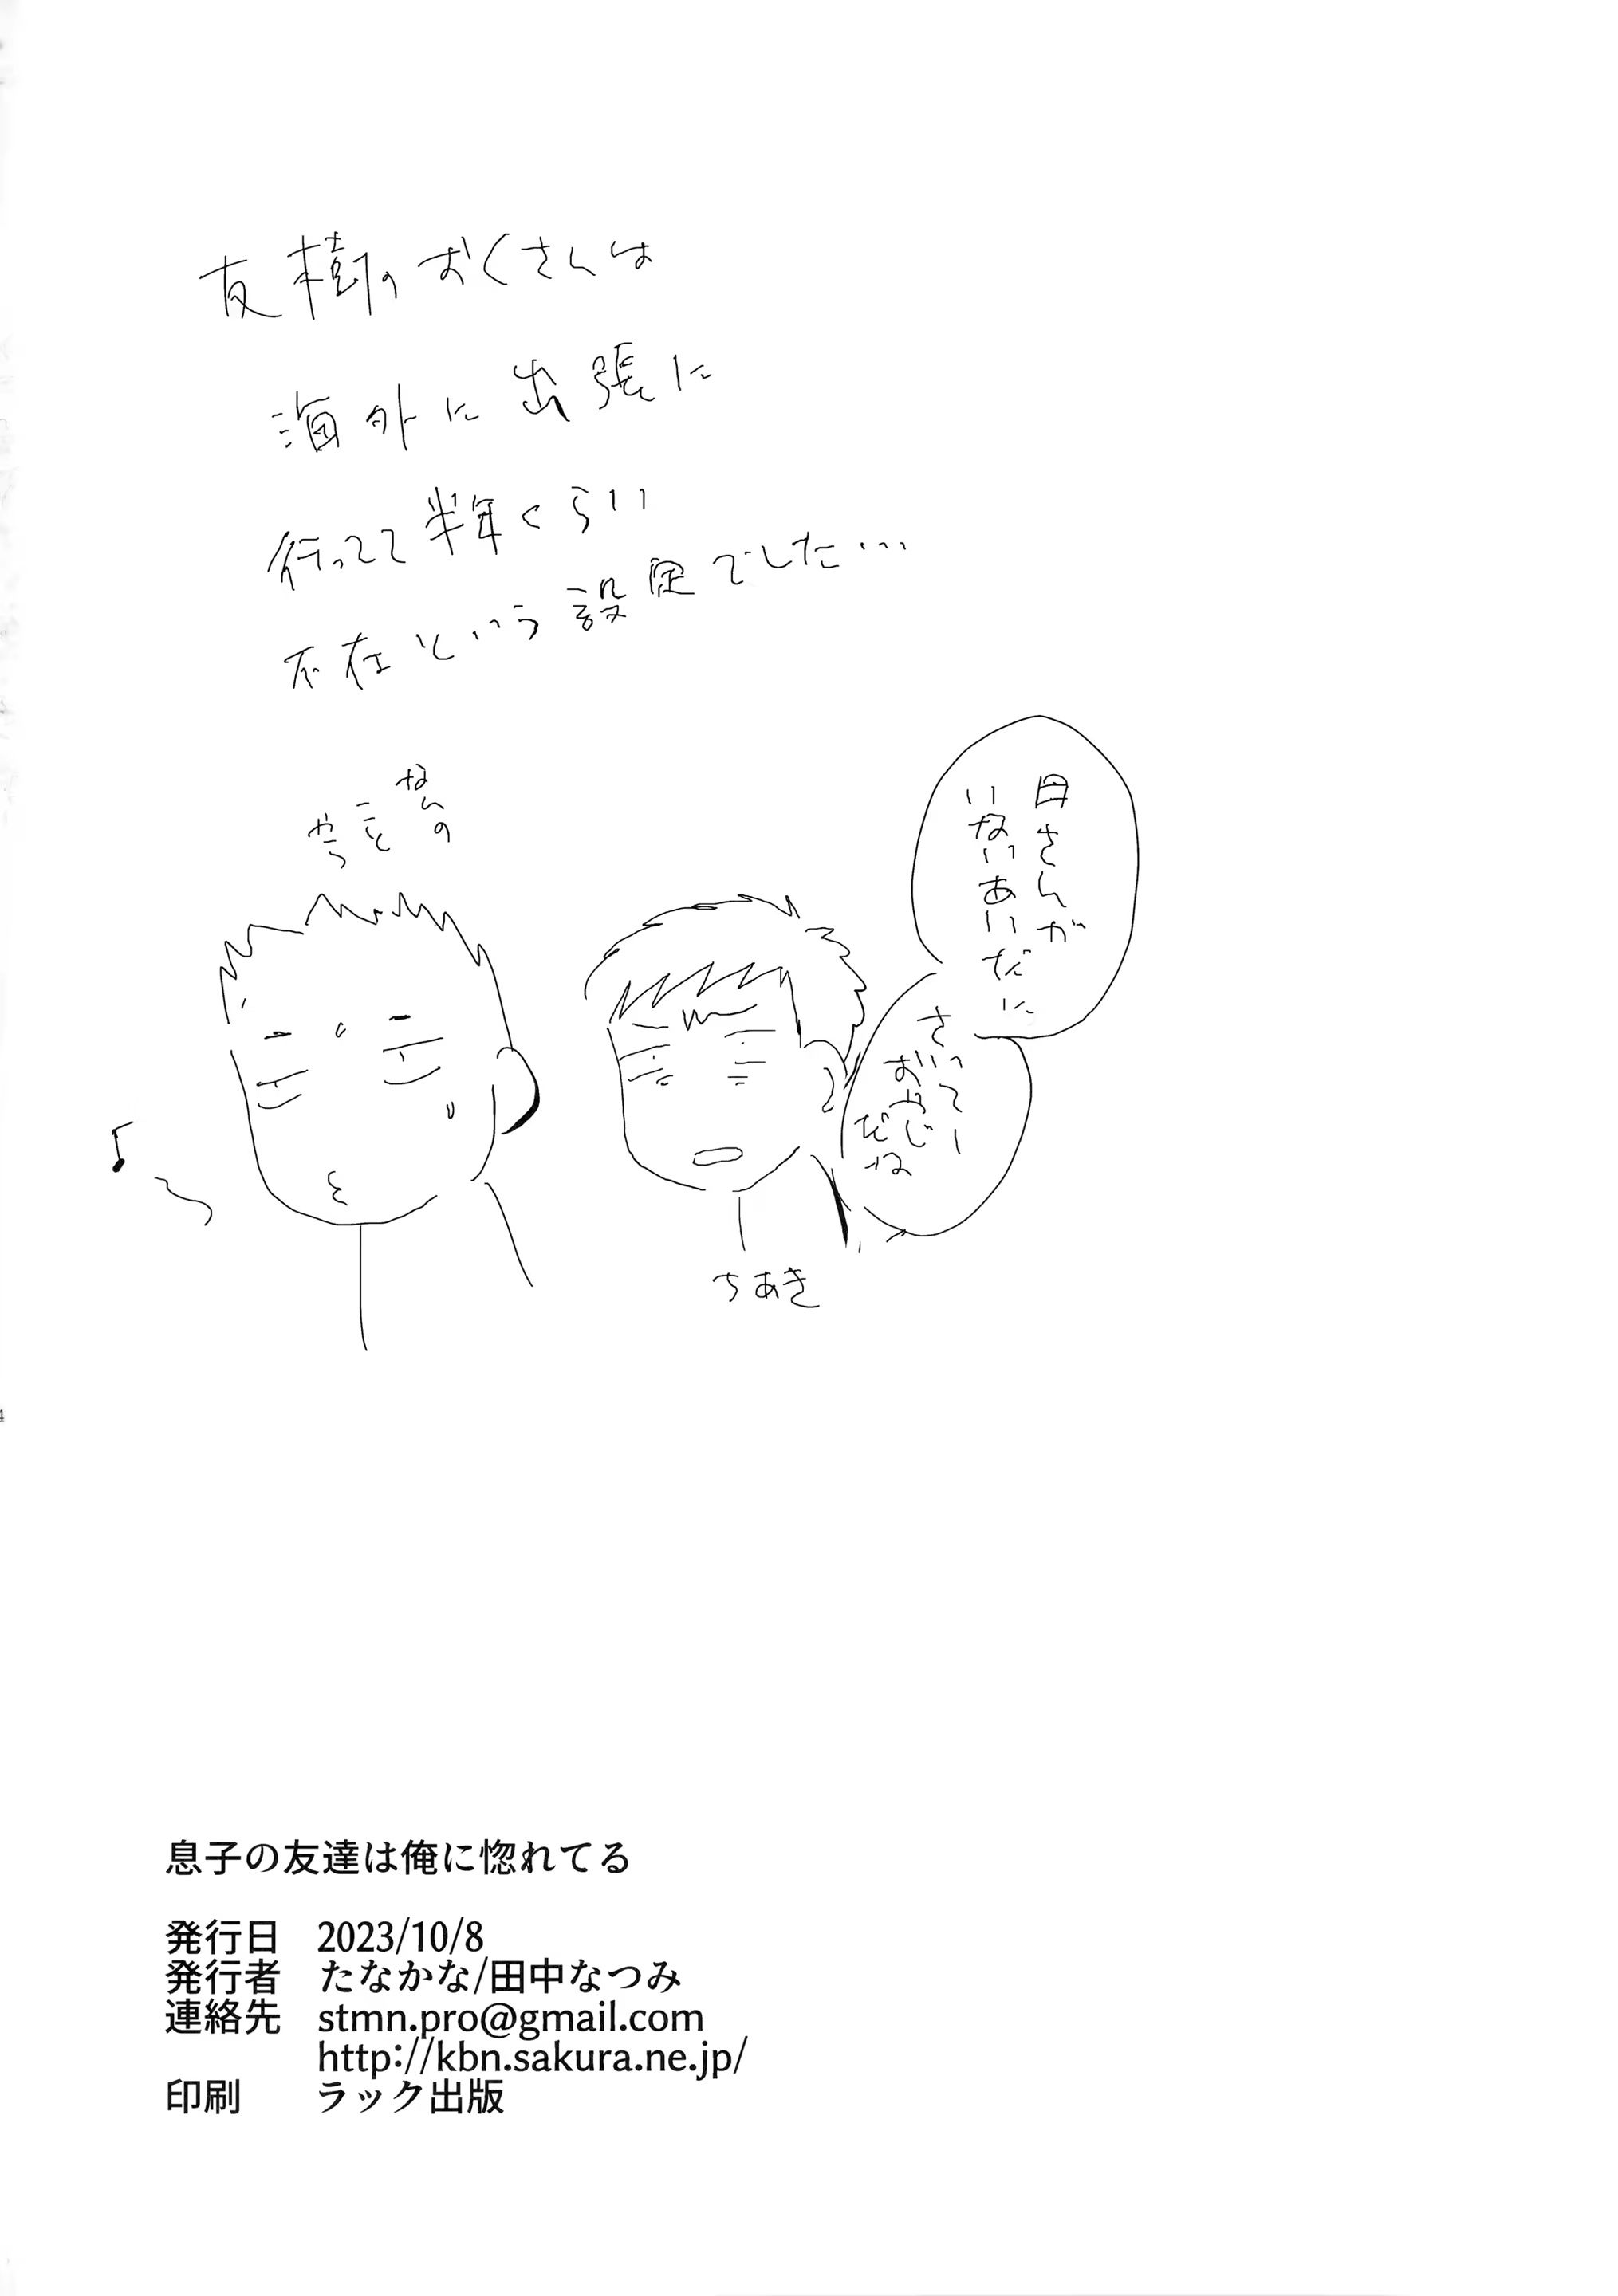 友樹のおくさんは
海外に出張に
行ってて半年くらい
不在という設定でした…
母さんが
いないあいだに
さいってー
おやじ
なんの
こと
やら
ちあき
息子の友達は俺に惚れてる
発行日 2023/10/8
発行者 たなかな/田中なつみ
連絡先 stmn.pro@gmail.com
http://kbn.sakura.ne.jp/
印刷 ラック出版